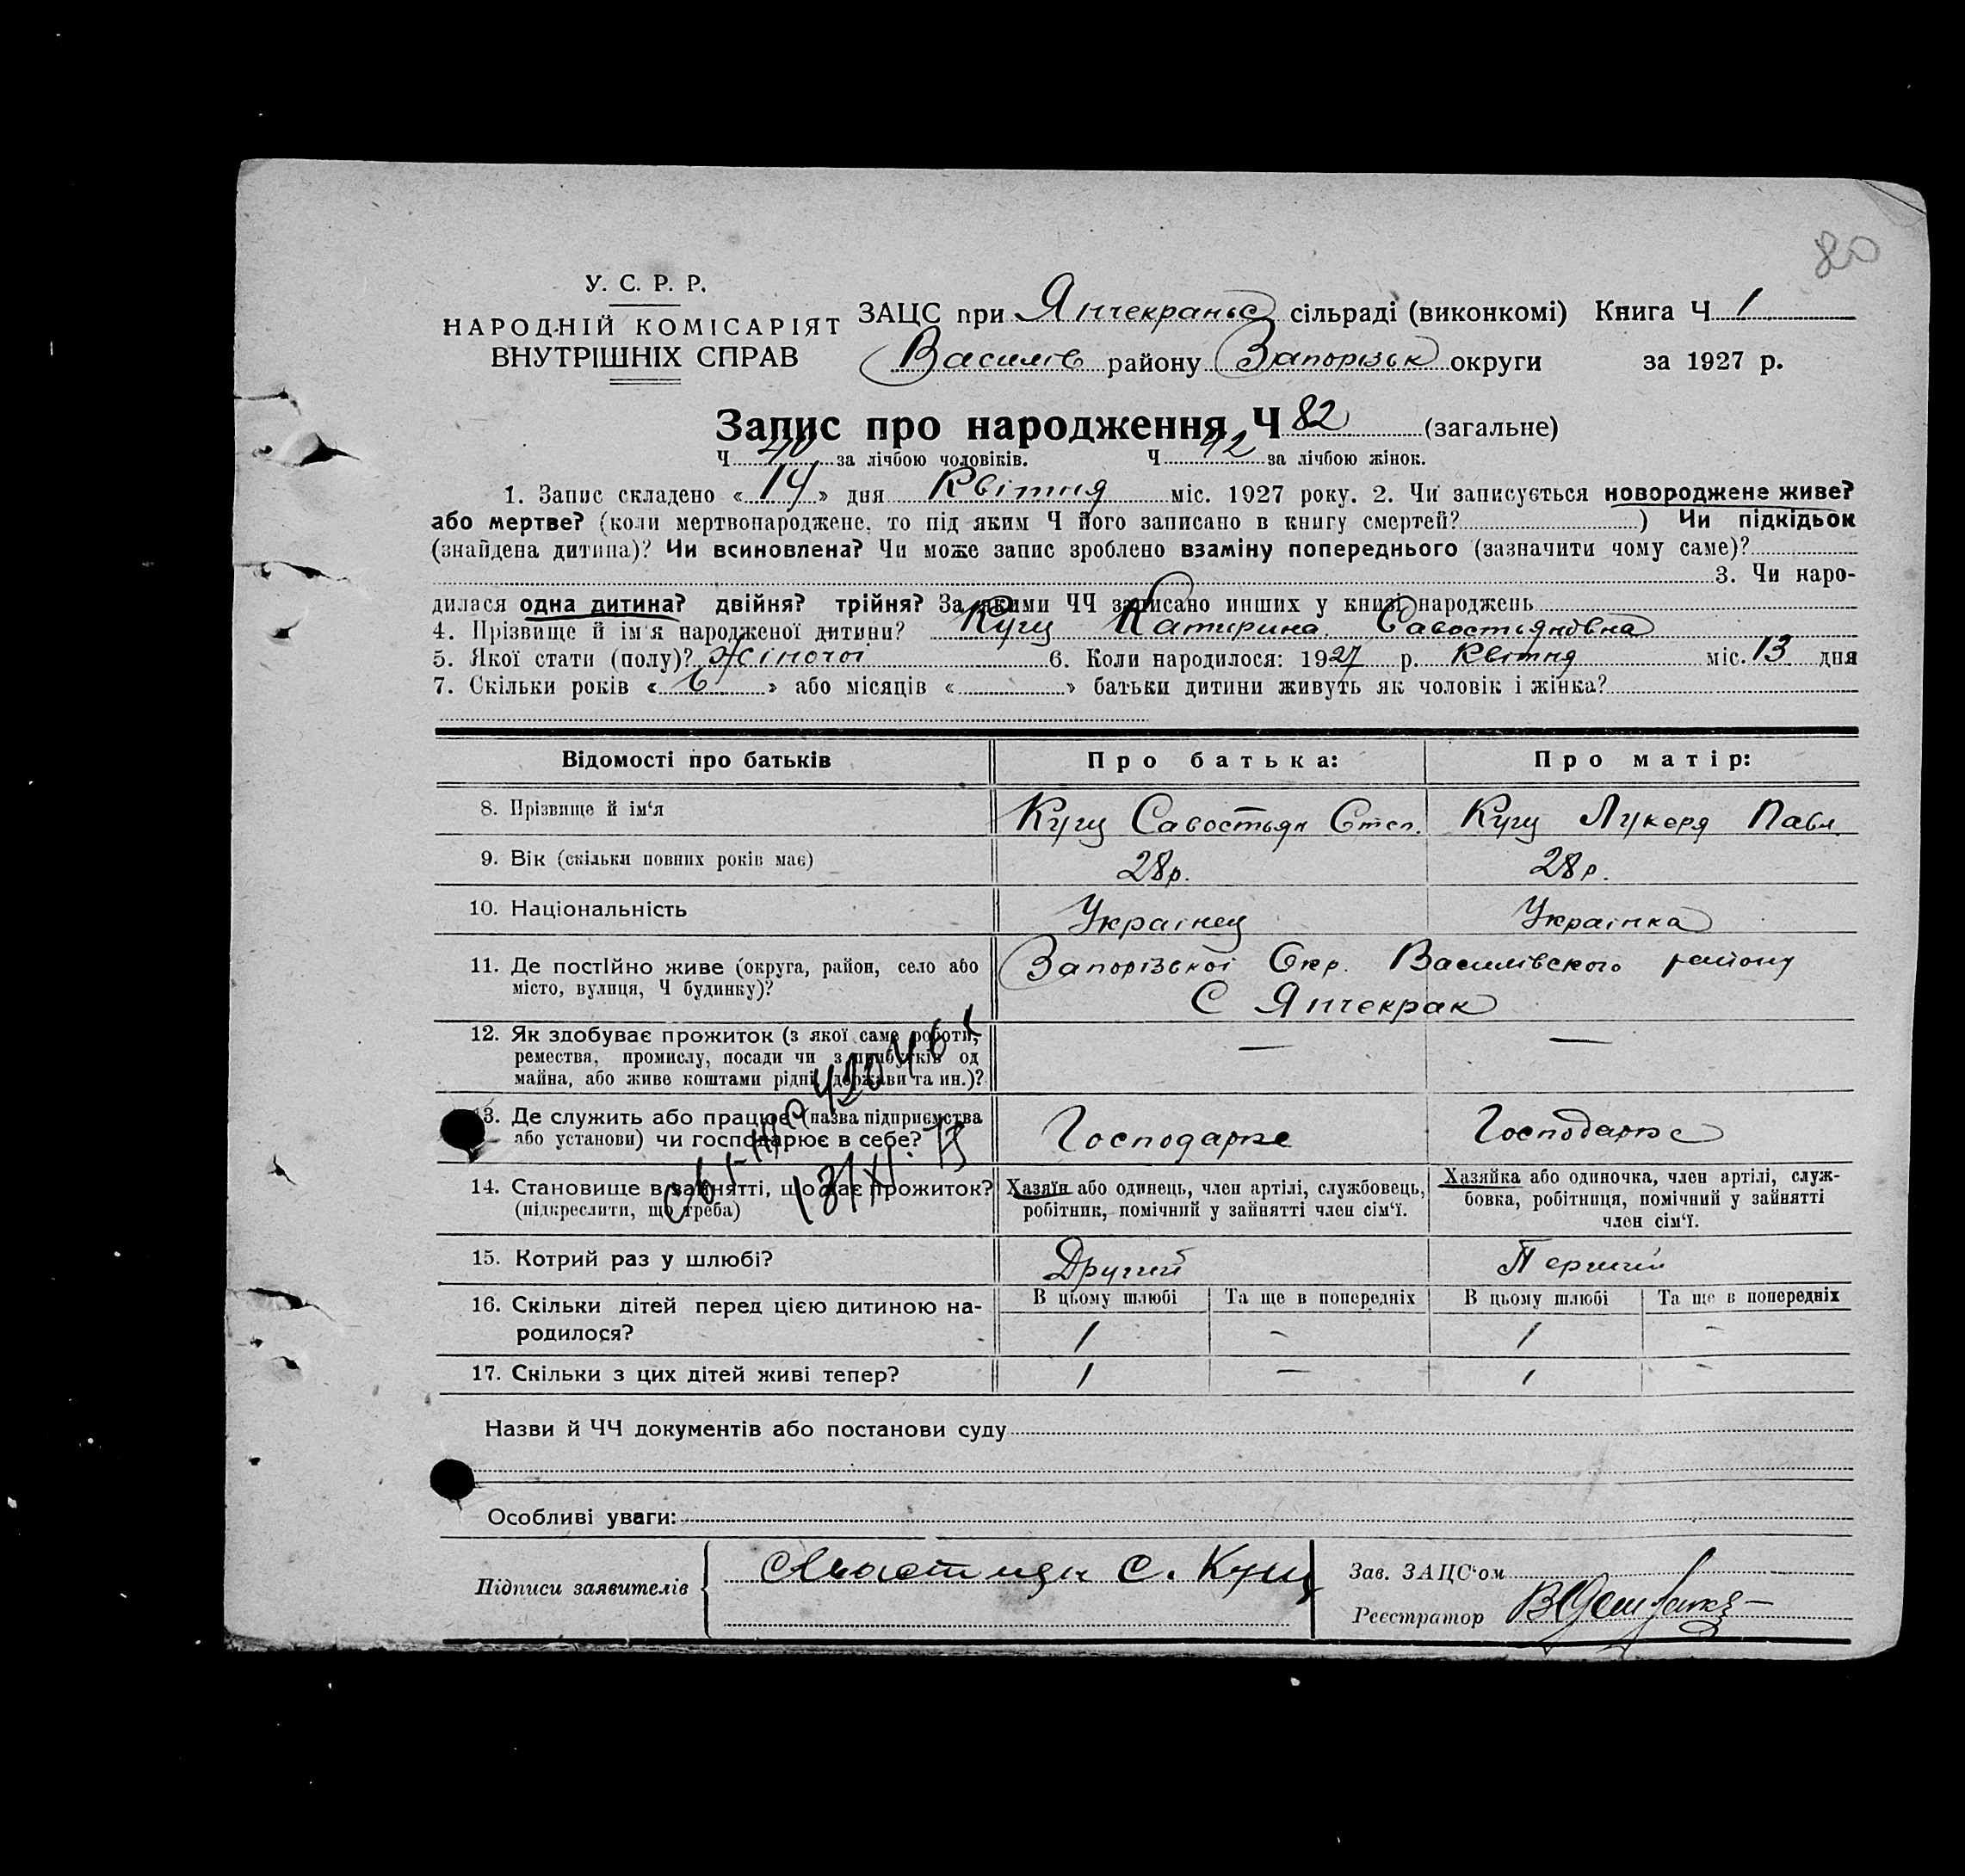 80
У. С. Р. Р.
НАРОДНІЙ КОМІСАРІЯТ
ВНУТРІШНІХ СПРАВ
ЗАЦС при Янчекраньс сільраді (виконкомі) Книга Ч 1
Василів району Запорізьк округи за 1927 р.
Запис про народження Ч 82 (загальне)
Ч 40 за лічбою чоловіків. Ч 42 за лічбою жінок.
1. Запис складено « 14 » дня Квітня міс. 1927 року. 2. Чи записується новороджене живе?
або мертве? (коли мертвонароджене, то під яким Ч його записано в книгу смертей? ) Чи підкідьок
(знайдена дитина)? Чи всиновлена? Чи може запис зроблено взаміну попереднього (зазначити чому саме)?
3. Чи наро-
дилася одна дитина? двійня? трійня? За якими ЧЧ записано инших у книзі народжень
4. Прізвище й ім'я народженої дитини? Куц Катерина Савостьяновна
5. Якої стати (полу)? Жіночоі 6. Коли народилося: 1927 р. Квітня міс. 13 дня
7. Скільки років « 6 » або місяців « » батьки дитини живуть як чоловік і жінка?
Відомості про батьків Про батька: Про матір:
8. Прізвище й ім‘я Куц Савостьян Степ. Куц Лукеря Павл.
9. Вік (скільки повних років має) 28р. 28р.
10. Національність Украінец Украінка
11. Де постійно живе (округа, район, село або Запорізькоі Окр. Василівского району
місто, вулиця, Ч будинку)? С Янчекрак
12. Як здобуває прожиток (з якої саме роботи, — —
ремества, промислу, посади чи з прибутків од
майна, або живе коштами рідні, держави та ин.)?
13. Де служить або працює (назва підприємства Господарює Господарює
або установи) чи господарює в себе?
14. Становище в занятті, що дає прожиток? Хазяїн або одинець, член артілі, службовець, Хазяйка або одиночка, член артілі, служ-
(підкреслити, що треба) робітник, помічний у зайнятті член сім‘ї. бовка, робітниця, помічний у зайнятті
член сім‘ї.
15. Котрий раз у шлюбі? Другий Перший
16. Скільки дітей перед цією дитиною на- В цьому шлюбі Та ще в попередніх В цьому шлюбі Та ще в попередніх
родилося? 1 - 1 -
17. Скільки з цих дітей живі тепер? 1 — 1 -
Назви й ЧЧ документів або постанови суду
Особливі уваги:
Підписи заявителів С. Куц Зав. ЗАЦС‘ом
Реєстратор